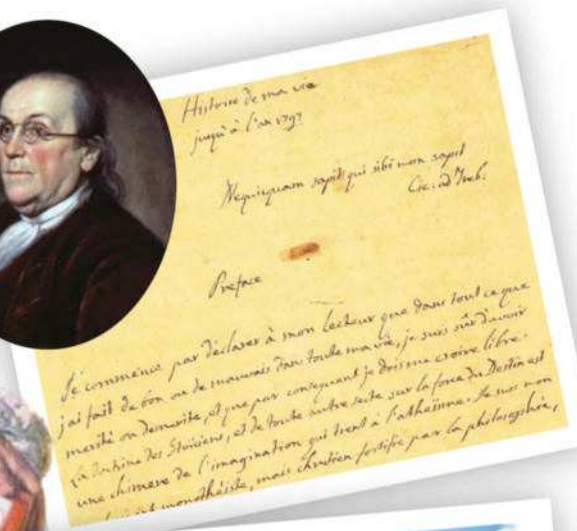 Histoire de ma vie
jusqu'à l'an 1797
Nequicquam sapit qui sibi non sapit
Cic. ad Treb.
Preface
Je commence par declarer à mon lecteur que dans tout ce que
j'ai fait de bon ou de mauvais dans toute ma vie, je suis sûr d'avoir
merité ou demerité, et que par consequent je dois me croire libre.
La doctrine des Stoïciens, et de toute autre secte sur la force du Destin est
une chimere de l'imagination qui tient à l'atheïsme. Je suis non
monothéiste, mais chretien fortifié par la philosophie,